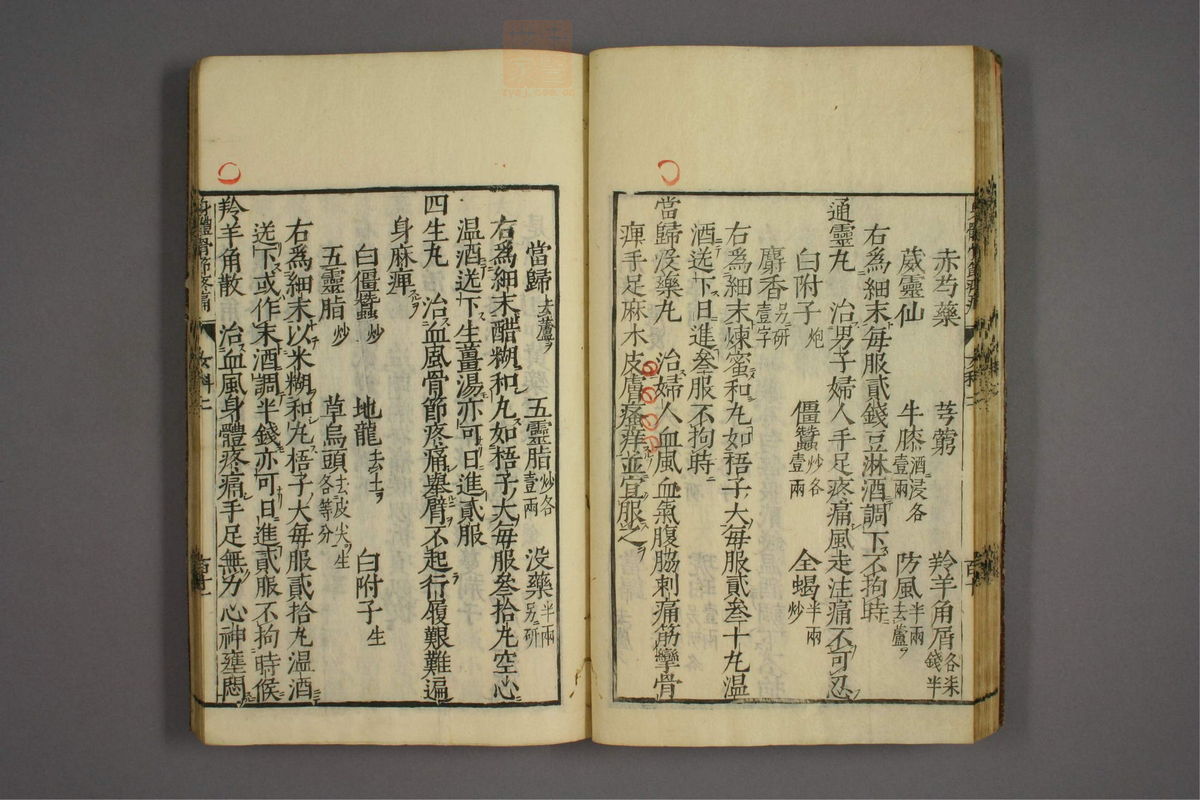 赤芍藥 芎藭 羚羊角屑各柒錢半
葳靈仙 牛膝酒浸各壹兩 防風半兩去蘆
右爲細末每服貳錢豆淋酒調下不拘時
通靈丸 治男子婦人手足疼痛風走注痛不可忍
白附子炮 僵蠶炒各壹兩 全蝎半兩炒
麝香壹字另研
右爲細末煉蜜和丸如梧子大每服貳叁十丸温
酒送下日進叁服不拘時
當歸没藥丸 治婦人血風血氣腹脇刺痛筋攣骨
痺手足麻木皮膚瘙痒並宜服之
當歸去蘆 五靈脂炒各壹兩 没藥半兩另研
右爲細末醋糊和丸如梧子大每服叁拾丸空心
温酒送下生薑湯亦可日進貳服
四生丸 治血風骨節疼痛舉臂不起行履艱難遍
身麻痺
白僵蠶炒 地龍去土 白附子生
五靈脂炒 草烏頭去皮尖生各等分
右爲細末以米糊和丸梧子大每服貳拾丸温酒
送下或作末酒調半錢亦可日進貳服不拘時候
羚羊角散 治血風身體疼痛手足無力心神壅悶
身體骨節疼痛 女科二